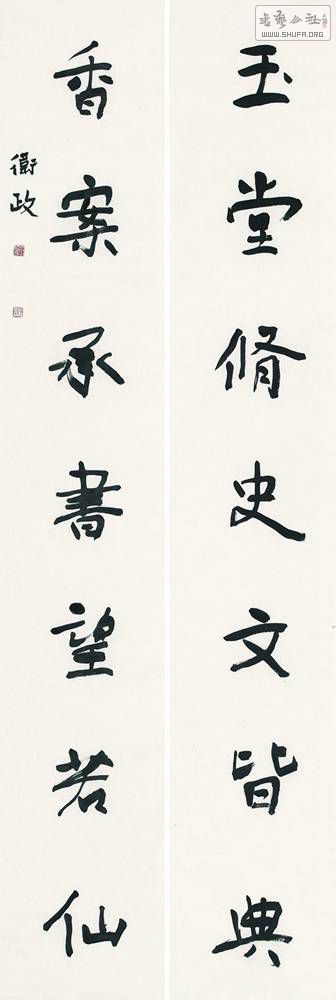 玉堂脩史文皆典
香案承書望若仙
衛政
書藝公社
WWW.SHUFA.ORG